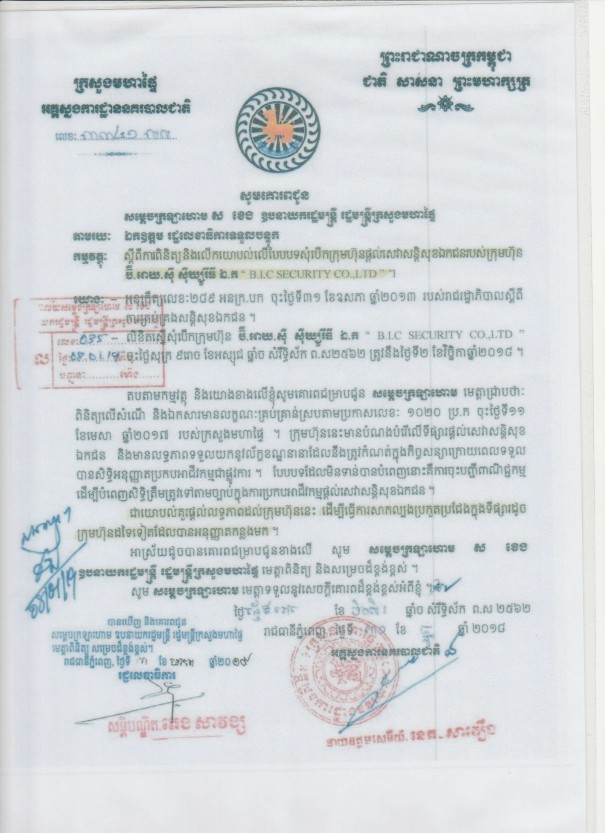 ព្រះរាជាណាចក្រកម្ពុជា
ជាតិ សាសនា ព្រះមហាក្សត្រ
ក្រសួងមហាផ្ទៃ
អគ្គស្នងការដ្ឋាននគរបាលជាតិ
លេខ:
សូមគោរពជូន
សម្តេចក្រឡាហោម ស ខេង ឧបនាយករដ្ឋមន្ត្រី រដ្ឋមន្ត្រីក្រសួងមហាផ្ទៃ
តាមរយៈ ឯកឧត្តម រដ្ឋលេខាធិការទទួលបន្ទុក
កម្មវត្ថុ: ស្តីពីការពិនិត្យនិងលើកយោបល់លើបែបបទសុំបើកក្រុមហ៊ុនផ្តល់សេវាសន្តិសុខឯកជនរបស់ក្រុមហ៊ុន
ប៊ី.អាយ.ស៊ី ស៊ីឃ្យួរីធី ឯ.ក " B.I.C SECURITY CO.,LTD " ។
យោង: - អនុក្រឹត្យលេខ:២៨៩ អនក្រ.បក ចុះថ្ងៃទី៣១ ខែឧសភា ឆ្នាំ២០១៣ របស់រាជរដ្ឋាភិបាលស្តីពី
ការគ្រប់គ្រងសន្តិសុខឯកជន។
- លិខិតស្នើសុំបើកក្រុមហ៊ុន ប៊ី.អាយ.ស៊ី ស៊ីឃ្យួរីធី ឯ.ក " B.I.C SECURITY CO.,LTD "
ចុះថ្ងៃសុក្រ ៩រោច ខែអស្សុជ ឆ្នាំច សំរឹទ្ធិស័ក ព.ស២៥៦២ ត្រូវនឹងថ្ងៃទី២ ខែវិច្ឆិកាឆ្នាំ២០១៨ ។
តបតាមកម្មវត្ថុ និងយោងខាងលើខ្ញុំសូមគោរពជម្រាបជូន សម្តេចក្រឡាហោម មេត្តាជ្រាបថា:
ពិនិត្យលើសំណើ និងឯកសារមានលក្ខណៈគ្រប់គ្រាន់ស្របតាមប្រកាសលេខ: ១០២០ ប្រ.ក ចុះថ្ងៃទី១១
ខែមេសា ឆ្នាំ២០១៧ របស់ក្រសួងមហាផ្ទៃ ។ ក្រុមហ៊ុននេះមានបំណងបំរើលើទីផ្សារផ្តល់សេវាសន្តិសុខ
ឯកជន និងមានលទ្ធភាពទទួលយកនូវល័ក្ខខណ្ឌនានាដែលនឹងត្រូវកំណត់ក្នុងកិច្ចសន្យាក្រោយពេលទទួល
បានសិទ្ធិអនុញ្ញាតប្រកបអាជីវកម្មជាផ្លូវការ ។ បែបបទដែលមិនទាន់បានបំពេញនោះគឺការចុះបញ្ជីពាណិជ្ជកម្ម
ដើម្បីបំពេញសិទ្ធិត្រឹមត្រូវទៅតាមច្បាប់ក្នុងការប្រកបអាជីវកម្មផ្តល់សេវាសន្តិសុខឯកជន ។
ជាយោបល់គួរផ្តល់លទ្ធភាពដល់ក្រុមហ៊ុននេះ ដើម្បីធ្វើការសាកល្បងប្រកួតប្រជែងក្នុងទីផ្សារដូច
ក្រុមហ៊ុនដទៃទៀតដែលបានអនុញ្ញាតកន្លងមក ។
អាស្រ័យដូចបានគោរពជម្រាបជូនខាងលើ សូម សម្តេចក្រឡាហោម ស ខេង
ឧបនាយករដ្ឋមន្ត្រី រដ្ឋមន្ត្រីក្រសួងមហាផ្ទៃ មេត្តាពិនិត្យ និងសម្រេចដ៏ខ្ពង់ខ្ពស់ ។
សូម សម្តេចក្រឡាហោម មេត្តាទទួលនូវសេចក្តីគោរពដ៏ខ្ពង់ខ្ពស់អំពីខ្ញុំ ។
ថ្ងៃ ខែ ឆ្នាំច សំរឹទ្ធិស័ក ព.ស ២៥៦២
រាជធានីភ្នំពេញ ថ្ងៃទី ខែ ឆ្នាំ ២០១៨
អគ្គស្នងការនគរបាលជាតិ
បានឃើញ និងគោរពជូន
សម្តេចក្រឡាហោម ឧបនាយករដ្ឋមន្ត្រី រដ្ឋមន្ត្រីក្រសួងមហាផ្ទៃ
មេត្តាពិនិត្យ សម្រេចដ៏ខ្ពង់ខ្ពស់។
រាជធានីភ្នំពេញ, ថ្ងៃទី ខែ ឆ្នាំ២០១៨
រដ្ឋលេខាធិការ
សម្តីបណ្ឌិត
នាយឧត្តមសេនីយ៍